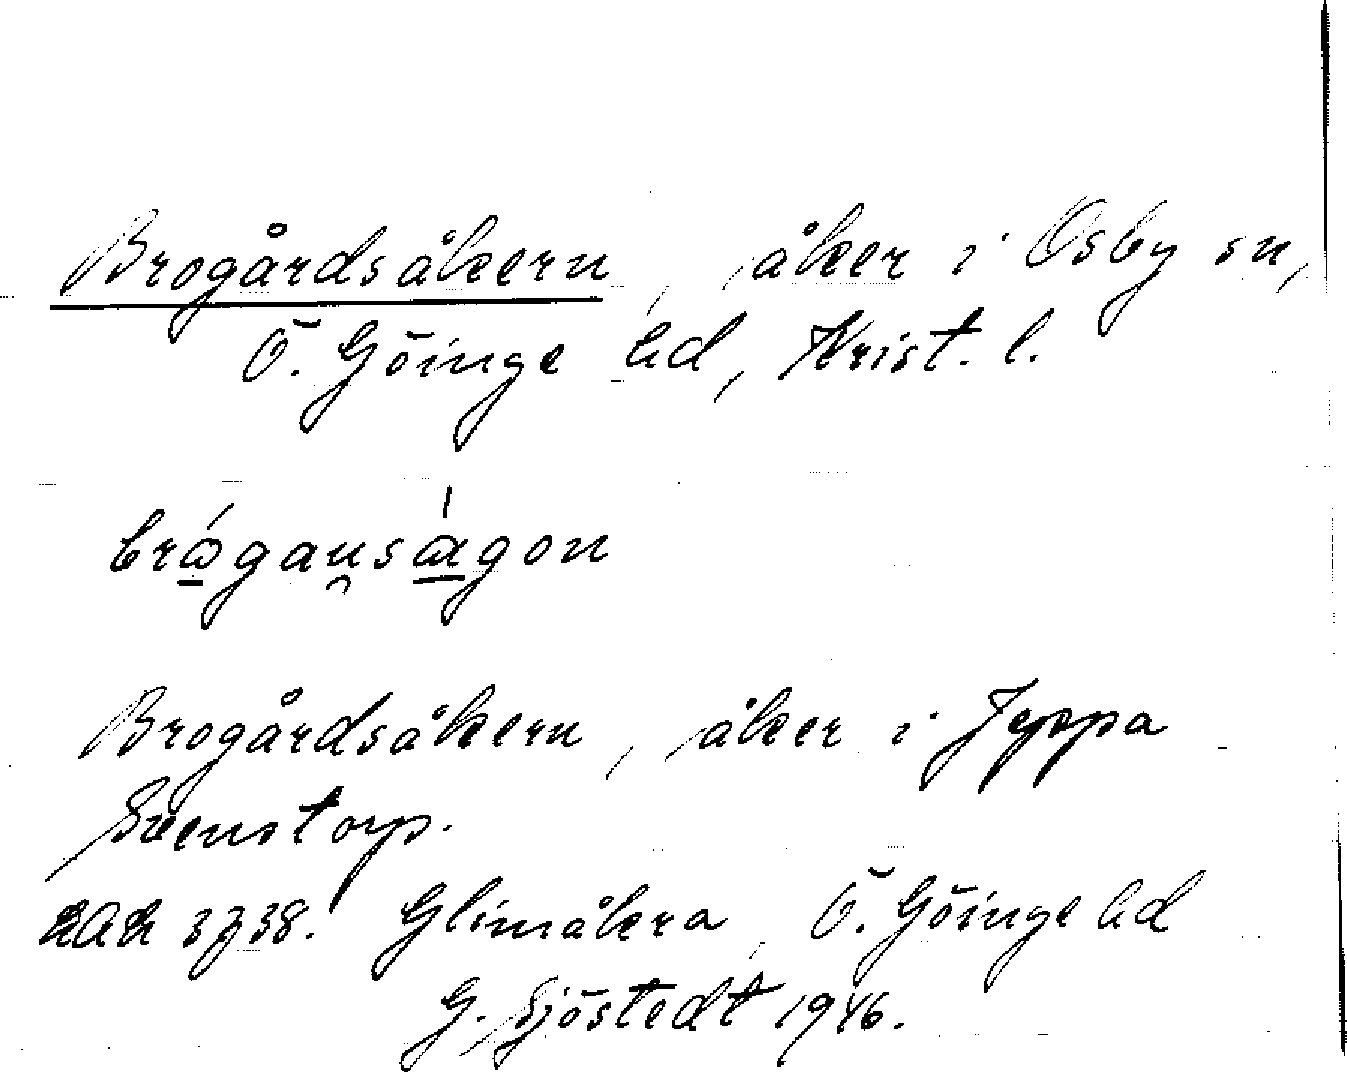 Brogårdsåkern, åker i Osby sn,
Ö. Göinge hd, Krist. l.
brågansågon
Brogårdsåkern, åker i Jeppa
Svenstorp.
Glimåkra, Ö. Göinge hd
G. Sjöstedt 1946.